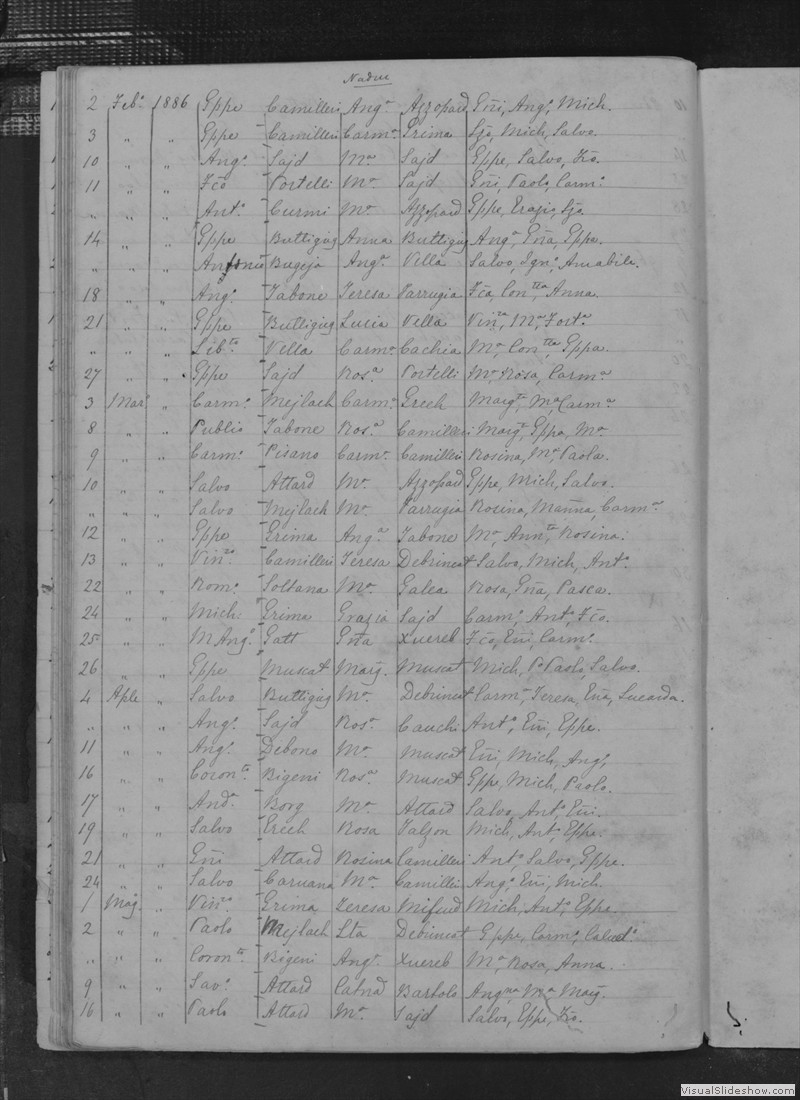 Nadur
2 Feb.o 1886 Gppe Camilleri Ang.a Azzopard Gni, Ang.o, Mich.
3 " " Gppe Camilleri Carm.a Grima Mich, Salvo.
10 " " Ang.o Sajd M.a Sajd Gppe, Salvo, Fco.
11 " " Fco Portelli M.a Sajd Gni, Paolo, Carm.o
" " " Ant.o Curmi M.a Azzopard Gppe,
14 " " Gppe Buttigieg Anna Buttigieg Ang.a, Gna, Gppa.
" " " Antonio Bugeja Ang.a Vella Salvo, Ign.o, Amabile.
18 " " Ang.o Tabone Teresa Farrugia Fca, Con.tta Anna.
21 " " Gppe Buttigieg Lucia Vella Vin.za, M.a, Fort.a
" " " Lib.to Vella Carm.a Cachia M.a, Con.tta, Gppa.
27 " " Gppe Sajd Ros.a Portelli M.a Rosa, Carm.a
3 Mar. " Carm.o Mejlach Carm.a Grech Marg.ta, M.a, Carm.a
8 " " Publio Tabone Ros.a Camilleri Marg.ta, Gppa, M.a
9 " " Carm.o Pisano Carm.a Camilleri Rosina, M.a, Paola.
10 " " Salvo Attard M.a Azzopard Gppe, Mich, Salvo.
" " " Salvo Mejlach M.a Farrugia Rosina, Marina, Carm.a
12 " " Gppe Grima Ang.a Tabone M.a, Ann.ta, Rosina.
13 " " Vin.zo Camilleri Teresa Debrincat Salvo, Mich, Ant.o
22 " " Rom.o Soltana M.a Galea Rosa, Gna, Pasca.
24 " " Mich Grima Grazia Sajd Carm.o, Ant.o, Fco.
25 " " M.Ang.o Gatt Pita Xuereb Fco, Gni, Carm.o
26 " " Gppe Muscat Marg. Muscat Mich, P. Paolo, Salvo.
4 Aple " Salvo Buttigieg M.a Debrincat Carm.a, Teresa, Gna, Lucarda.
" " " Ang.o Sajd Ros.a Cauchi Ant.o, Gni, Gppe.
11 " " Ang.o Debono M.a Muscat Gni, Mich, Ang.o,
16 " " Coron.to Bigeni Ros.a Muscat Gppe, Mich, Paolo.
17 " " And.a Borg M.a Attard Salvo, Ant.o, Gni.
19 " " Salvo Grech Rosa Falzon Mich, Ant.o, Gppe.
21 " " Gni Attard Rosina Camilleri Ant.o, Salvo, Gppe.
24 " " Salvo Caruana M.a Camilleri Ang.o, Gni, Mich.
1 Mag. " Vin.zo Grima Teresa Mifsud Mich, Ant.o, Gppe.
2 " " Paolo Mejlach Debrincat Gppe, Carm.o,
" " " Coron.to Bigeni Ang.a Xuereb M.a, Rosa, Anna.
9 " " Sav.o Attard Catna Bartolo Ang.na, M.a, Marg.
16 " " Paolo Attard M.a Sajd Salvo, Gppe, Fco.
VisualSlideshow.com